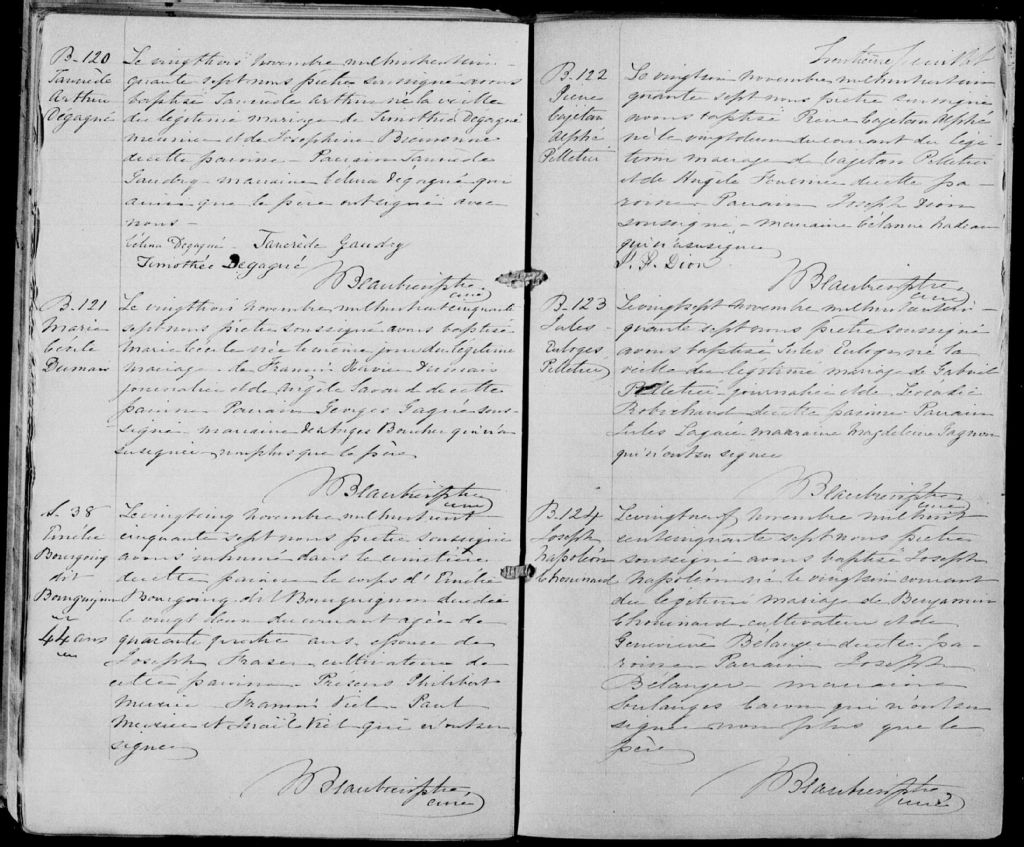 B-120
Tancrède
Arthur
Degagné
Le vingt trois novembre mil huit cent cin-
quante sept nous prêtre soussigné avons
baptisé Tancrède Arthur né la veille
du légitime mariage de Timothée Degagné
meunier et de Josephine Bienvenue
de cette paroisse - Parrain Tancrède
Gaudry - marraine Célina Degagné qui
ainsi que le père ont signé avec
nous -
Célina Degagné - Tancrède Gaudry
Timothée Degagné
Beaubien ptre
curé
B-121
Marie
Cécile
Dumais
Le vingt trois novembre mil huit cent cinquante
sept nous prêtre soussigné avons baptisé
Marie Cécile née le même jour du légitime
mariage de Francois Dumais
journalier et de Angèle Savard de cette
paroisse Parrain Georges Gagné sous-
signé - marraine des Anges Boucher qui n'a
su signer non plus que le père
Beaubien ptre
curé
S. 38
Emélie
Bourgoing
dit
Bourguignon
44 ans
Le vingt cinq novembre mil huit cent
cinquante sept nous prêtre soussigné
avons inhumé dans le cimetière
de cette paroisse le corps d'Emélie
Bourgoing dit Bourguignon décédée
le vingt deux du courant agée de
quarante quatre ans, epouse de
Joseph Fraser cultivateur de
cette paroisse - Présens Philibert
Francois Viel - Paul
et Viel qui n'ont su
signer
Beaubien ptre
curé
Trentième feuillet
B-122
Pierre
Cajetan
Alphé
Pelletier
Le vingt six novembre mil huit cent cin
quante sept nous prêtre soussigné
avons baptisé Pierre Cajetan Alphé
né le vingt deux du courant du légi-
time mariage de Cajetan Pelletier
et de Angèle Fournier de cette pa-
roisse - Parrain Joseph Dion
soussigné - marraine Nadeau
qui n'a su signer
J. P. Dion
Beaubien ptre
curé
B-123
Jules
Euloges
Pelletier
Le vingt sept novembre mil huit cent cin-
quante sept nous prêtre soussigné
avons baptisé Jules Euloge né la
veille du légitime mariage de Gabriel
Pelletier - journalier et de Léocadie
Robichaud de cette paroisse Parrain
Jules Lagacé marraine Magdeleine Gagnon
qui n'ont su signer
Beaubien ptre
curé
B-124
Joseph
Napoléon
Chouinard
Le vingt neuf novembre mil huit
cent cinquante sept nous prêtre
soussigné avons baptisé Joseph
Napoléon né le vingt six courant
du légitime mariage de Benjamin
Chouinard cultivateur et de
Geneviève Bélanger de cette pa-
roisse - Parrain Joseph
Bélanger - marraine
Soulanges Caron qui n'ont su
signer non plus que le
père
Beaubien ptre
curé